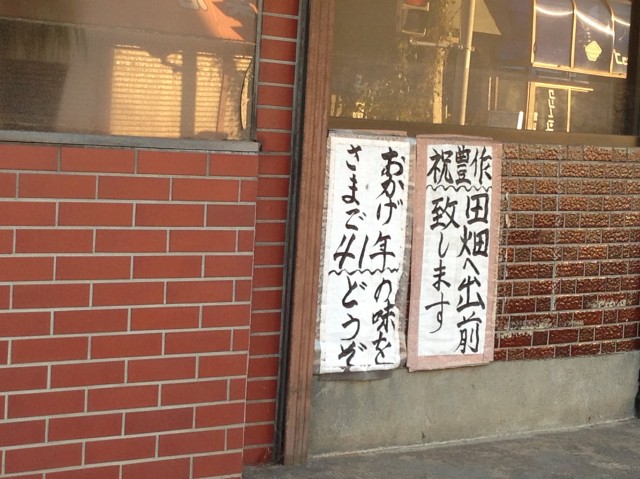 祝豊作
田畑へ出前
致します
おかげ
さまで
41年
の味を
どうぞ